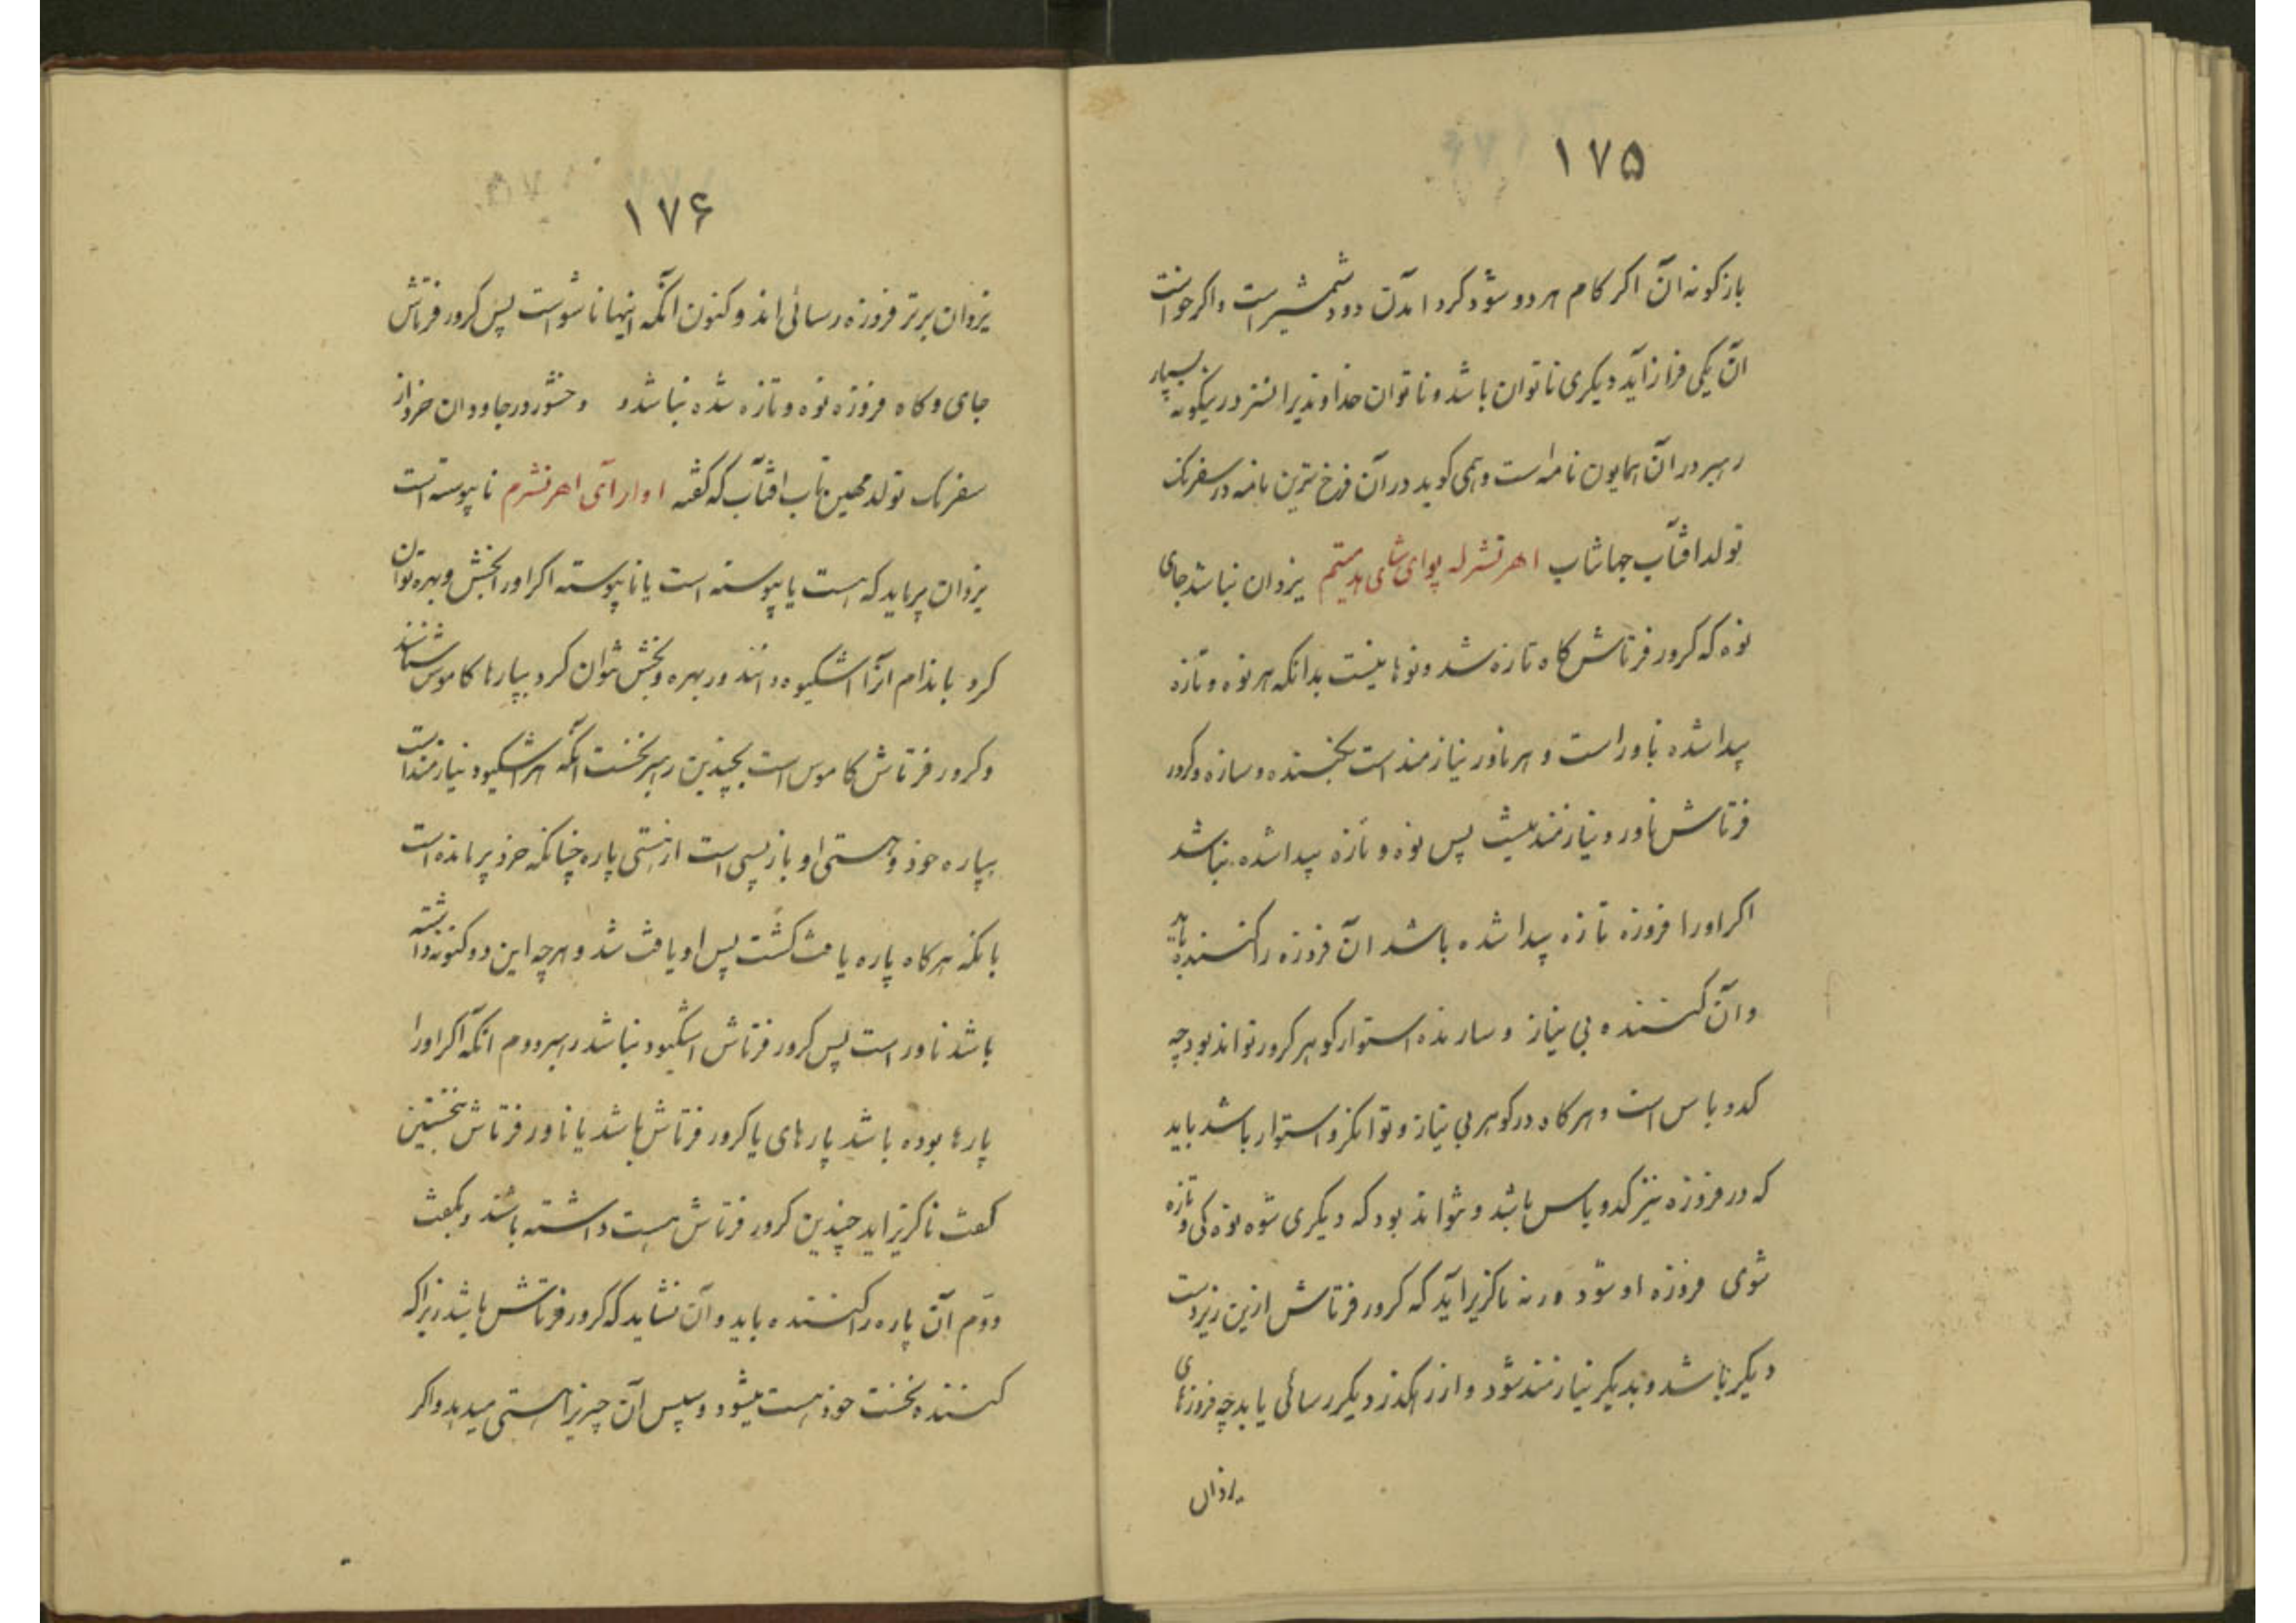 ۱۷۵
بازگونه آن اگر کام هر دو شود گرد آمدن دو دشمیر است و اگر خواست
آن یکی فراز آید دیگری ناتوان باشد و ناتوان خداوندیرا نسزد درینگونه بسیار
رهبر در آن همایون نامه است و همی گوید در آن فرخ ترین نامه در سفرنگ
تولد افتاب جهانتاب اهر نشرله پوای شای مد میتم یزدان نباشد جای
نوه که کرور فرتاش گاه تازه شد و نوها نیست بدانکه هر نوه و تازه
پیدا شده ناور است و هر ناور نیازمند است بخشنده و سازه و کرور
فرتاش ناور و نیازمند نیست پس نوه و تازه پیدا شده نباشد
اگر او را فروزه تازه پیدا شده باشد آن فروزه را کننده باید
و آن کننده بی نیاز و سازنده استوار گوهر کرور تواند بود چه
کدو باس است و هر گاه در گوهر بی نیاز و توانگر و استوار باشد باید
که در فروزه نیز کدو باس باشد و نتواند بود که دیگری شوه نوه گی و تازه
شوی فروزه او شود ورنه ناگزیر آید که کرور فرتاش ازین زیردست
دیگر باشد و بدیگر نیازمند شود و از رهگذر دیگر رسائی یابد چه فروزهای
یزدان
۱۷۶
یزدان برتر فروزه رسائی اند و کنون آنکه اینها ناشو است پس کرور فرتاش
جای و گاه فروزه نوه و تازه شده نباشد و وخشور در جاودان خرد از
سفرنگ تولد مهین تاب افتاب که گفته اوار آی اهر نشرم ناپیوسته است
یزدان پرماید که هست یا پیوسته است یا ناپیوسته اگر او را بخش و بهره توان
کرد باندام آنرا اشکیوه دانند ور بهره و بخش نتوان کرد بپارها کاموس شناسند
و کرور فرتاش کاموس است بچندین رهبر نخست آنکه هر اشکیود نیازمند است
بپاره خود و هستی او بازپسی است از هستی پاره چنانکه خرد پرمانده است
بانکه هر گاه پاره یافت گشت پس او یافت شد و هر چه این دو گونه داشته
باشد ناور است پس کرور فرتاش اشکیود نباشد رهبر دوم آنکه اگر او را
پارها بوده باشد پارهای یا کرور فرتاش باشد یا ناور فرتاش نخستین
گفت ناگزیر اید چندین کرور فرتاش هست داشته باشد و بگفت
دوّم آن پاره را کننده باید و آن نشاید که کرور فرتاش باشد زیرا که
کننده نخست خود هست میشود و سپس آن چیز را هستی میدهد و اگر